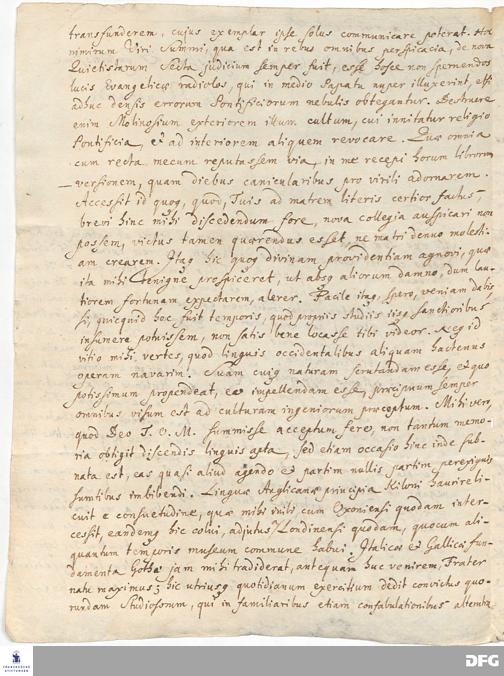 transfunderem, cujus exemplar ipse solus communicare poterat.
nimirum Viri Summi, qua est in rebus omnibus perspicacia, de nova
Quietistarum Secta judicium semper fuit, esse hosce non spernendos
lucis Evangelicæ radiolos, qui in medio Papatu nuper illuxerint, etsi
adhuc densis errorum Pontificiorum nebulis obtegantur. Destruere
enim Molinosium exteriorem illum cultum, cui innitatur religio
Pontificia, & ad interiorem aliquem revocare. Quæ omnia
cum recta mecum reputassem via, in me recepi horum librorum
versionem, quam diebus canicularibus pro virili adornarem.
Accessit id quoq, quod, Tuis ad matrem literis certior factus,
brevi hinc mihi discedendum fore, nova collegia auspicari non
possem, victus tamen quærendus esset, ne matri denuo molesti-
am crearem. Itaq hic quoq divinam providentiam agnovi, quæ
ita mihi benigne prospiceret, ut absq aliorum damno, dum lau-
tiorem fortunam expectarem, alerer. Facile itaq, spero, veniam dabis,
si, quicquid hoc fuit temporis, quod propriis studiis iisq sanctioribus
insumere potuissem, non satis bene locasse tibi videor. Neq id
vitio mihi vertes, quod linguis occidentalibus aliquam hactenus
operam navarim. Suam cuiq naturam scrutandam esse, & quo
potissimum propendeat, eo impellendam esse, præcipuum semper
omnibus visum est ad culturam ingeniorum præceptum. Mihi vero,
quod Deo T. O. M. summisse acceptum fero, non tantum memo-
ria obtigit discendis linguis apta, sed etiam occasio hinc inde sub-
nata est, eas quasi aliud agendo & partim nullis partim perexiguis
sumtibus imbibendi. Linguæ Anglicanæ principia Kiloni haurire li-
cuit e consuetudine, quæ mihi inibi cum Oxoniensi quodam inter-
cessit, eandemq hic colui, adjutus Londinensi quodam, quocum ali-
quantum temporis museum commune habui. Italicæ & Gallicæ fun-
damenta Gothæ jam mihi tradiderat, antequam huc venirem, Frater
natu maximus; hic utriusq quotidianum exercitium dedit convictus quo-
rundam Studiosorum, qui in familiaribus etiam confabulationibus
FRANCKESCHE
STIFTUNGEN
DFG